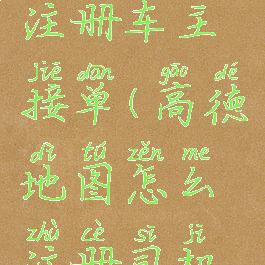 注册车主
jiē dān gāo dé
接单(高德
dì tú zěn me
地图怎么
zhù cè sī jī
注册司机